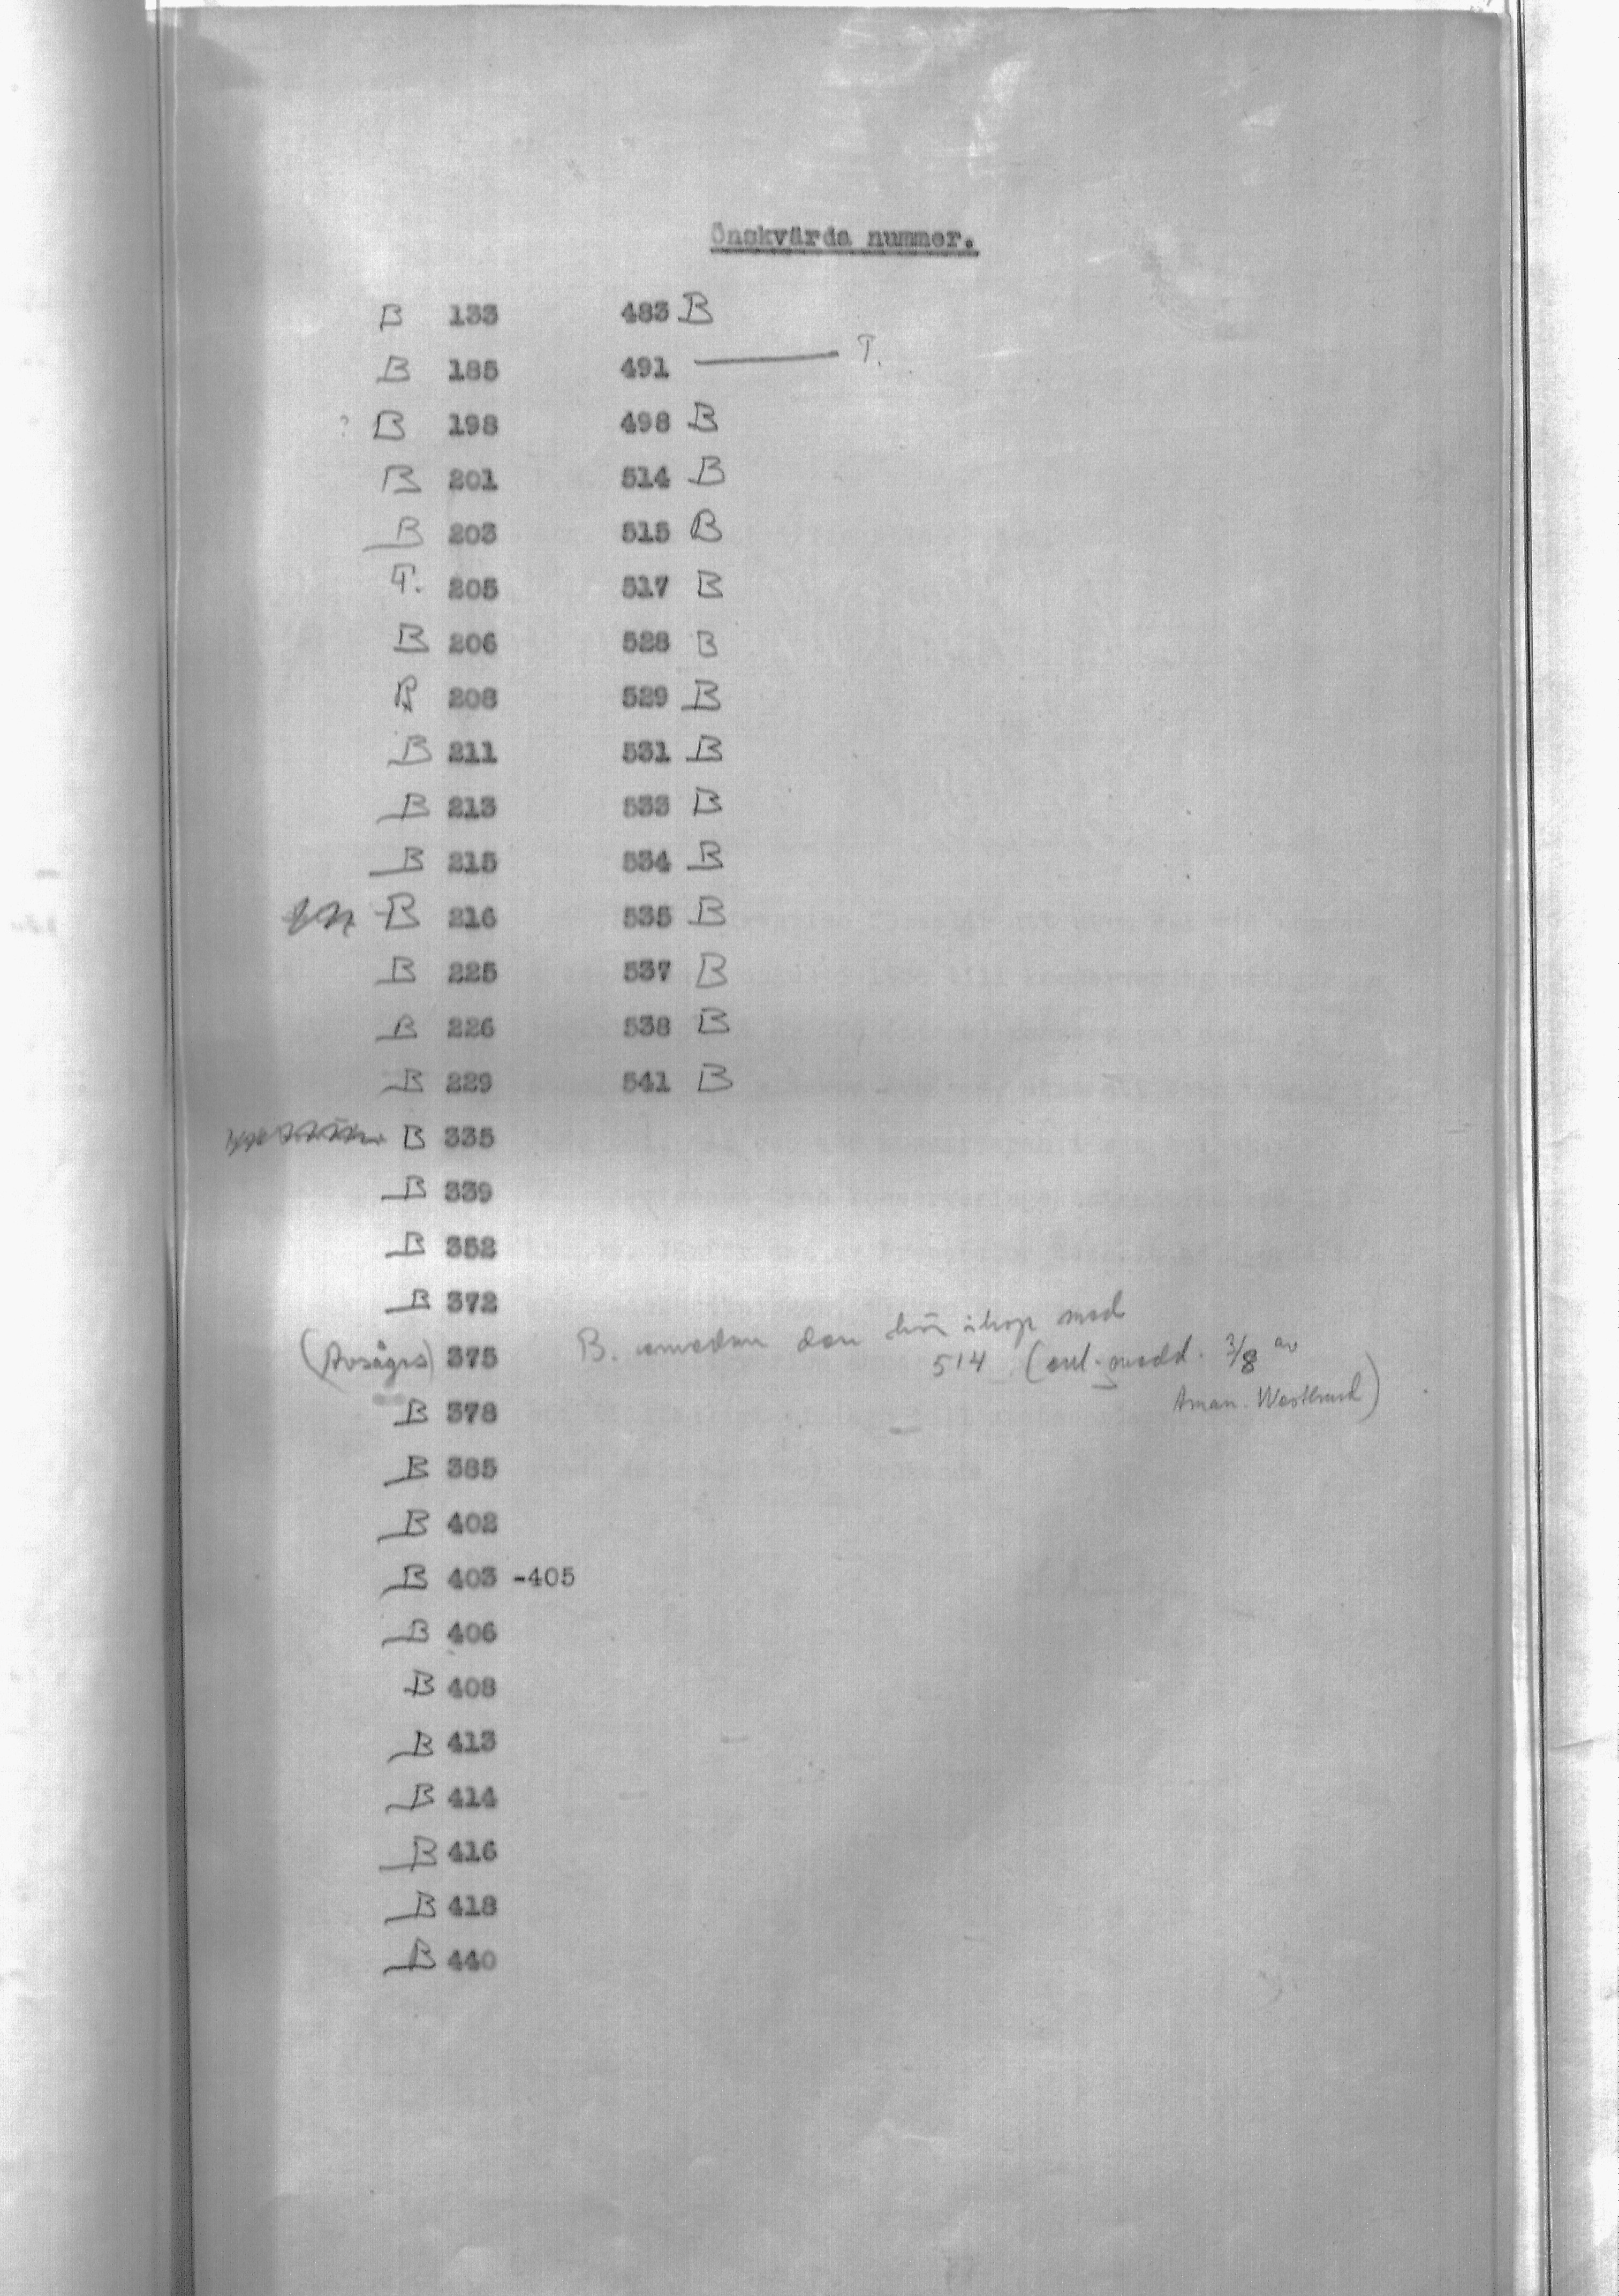 Önskvärda nummer.
B 133 483 B
B 185 491 — T.
? B 198 498 B
B 201 514 B
B 203 515 B
T. 205 517 B
B 206 528 B
B 208 529 B
B 211 531 B
B 213 533 B
B 215 534 B
B 216 535 B
B 225 537 B
B 226 538 B
B 229 541 B
B 335
B 339
B 352
B 372
(Avsågs) 375 B. emedan den hör ihop med
514 (enl. medd. 3/8 av
Aman. )
B 378
B 385
B 402
B 403 -405
B 406
B 408
B 413
B 414
B 416
B 418
B 440